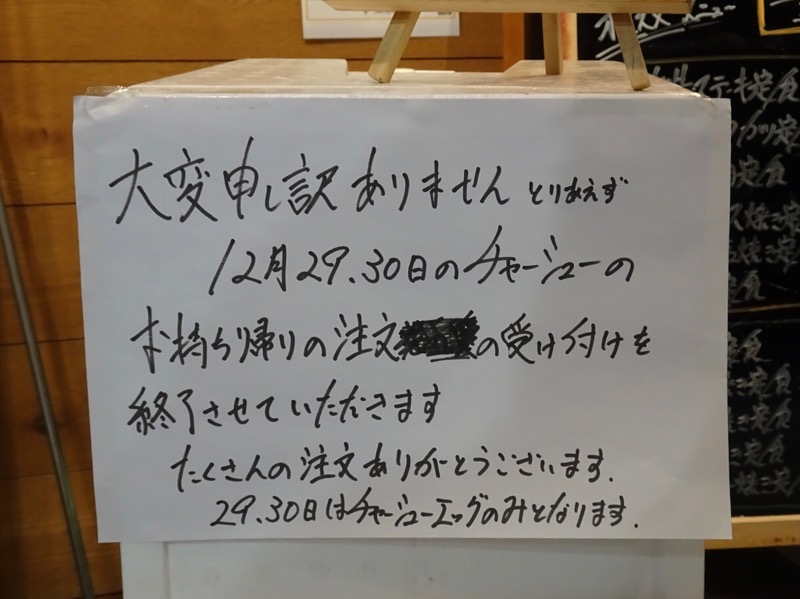 大変申し訳ありません とりあえず
12月29.30日のチャーシューの
お持ち帰りの注文の受け付けを
終了させていただきます
たくさんの注文ありがとうございます.
29.30日はチャーシューエッグのみとなります.
メニュー
ステーキ定食
定食
定食
定食